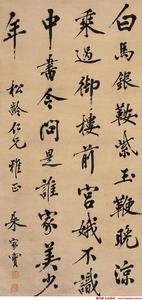 白馬銀鞍紫玉鞭晚涼
乘過御樓前宮娥不識
中書令問是誰家美少
年
松齡仁兄雅正
朱家寶